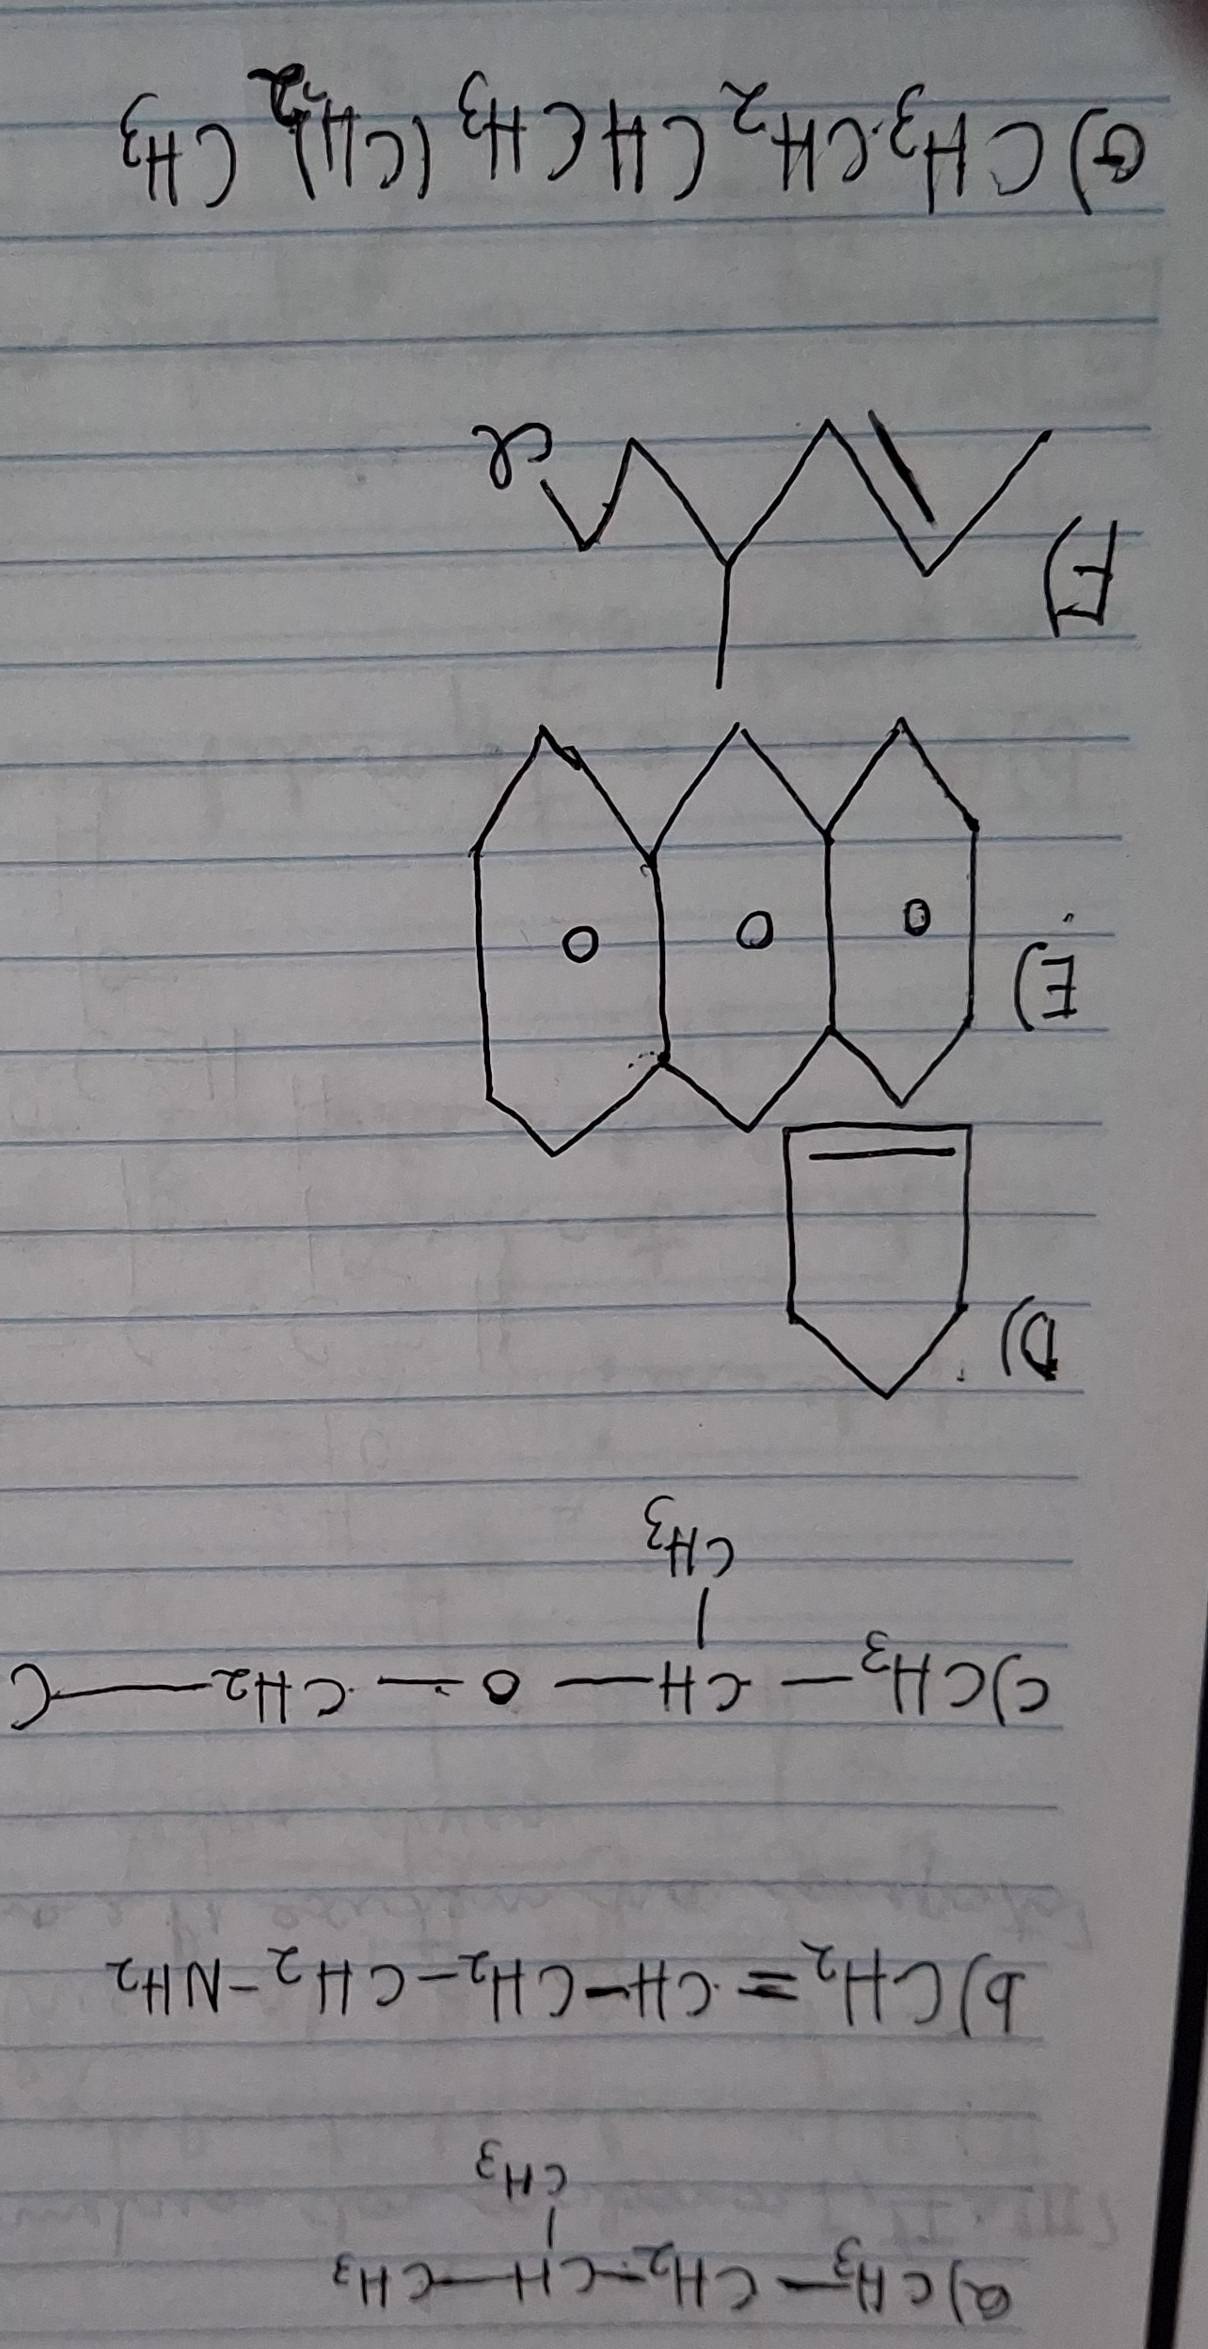 a) CH3 – CH2 – CH – CH3
CH3
b) CH2 = CH – CH2 – CH2 – NH2
c) CH3 – CH – O – CH2 – C
CH3
D)
E)
O O O
F)
Cl
G) CH3CH2CHCH3(CH)2CH3